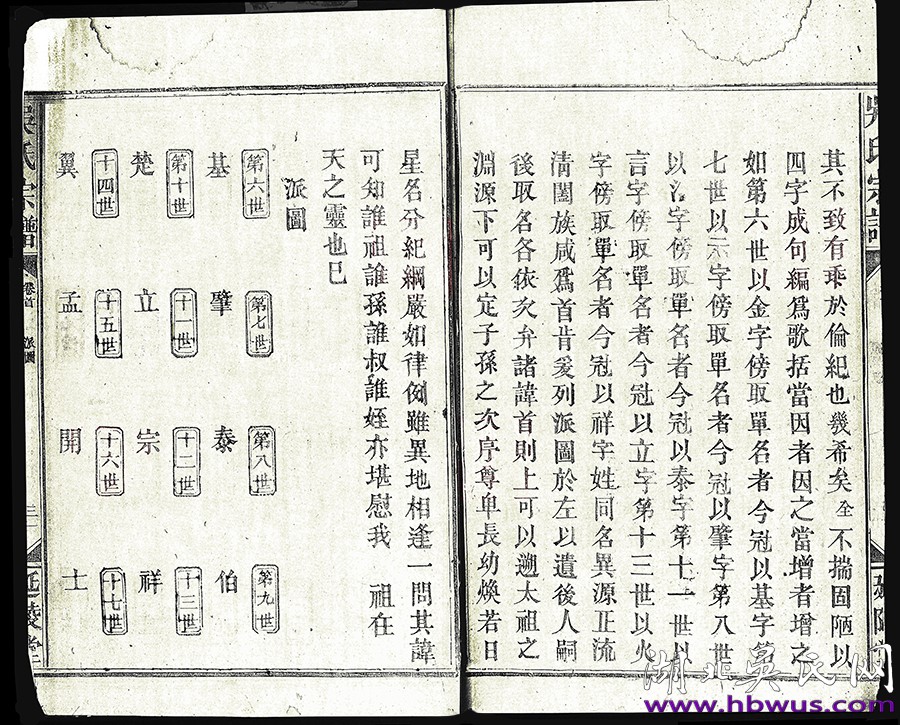 吳氏宗譜
延陵
其不致有乖於倫紀也幾希矣 全 不揣固陋以
四字成句編爲歌括當因者因之當增者增之
如第六世以金字傍取單名者今冠以基字第
七世以示字傍取單名者今冠以肇字第八世
以氵字傍取單名者今冠以泰字第十一世以
言字傍取單名者今冠以立字第十三世以火
字傍取單名者今冠以祥字姓同名異源正流
清闔族咸爲首肯爰列派圖於左以遺後人嗣
後取名各依次弁諸諱首則上可以遡太祖之
淵源下可以定子孫之次序尊卑長幼煥若日
星名分紀綱嚴如律例雖異地相逢一問其諱
可知誰祖誰孫誰叔誰姪亦堪慰我 祖在
天之靈也已
派圖
第六世 第七世 第八世 第九世
基 肇 泰 伯
第十世 十一世 十二世 十三世
楚 立 宗 祥
十四世 十五世 十六世 十七世
翼 孟 開 士
吳氏宗譜 卷首 派圖 延陵堂
湖北吴氏网
www.hbwus.com